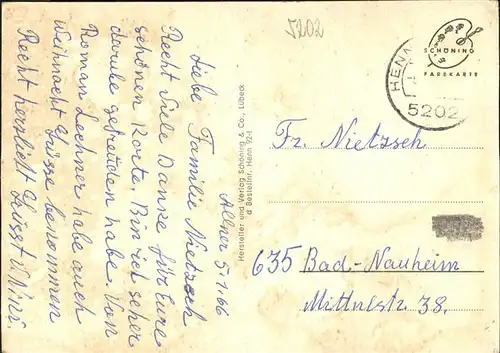 5202
Allner 5.1.66
Liebe Familie Nietzsch
Recht viele Danke für Eure
schönen Karte. Bin ich seher
darube gefreuden habe. Von
Roman Lechner habe auch
Weihnacht Grüsse bekommen
Recht herzlichst Grüsst
SCHÖNING
FARBKARTE
HENN
5202
Hersteller und Verlag Schöning & Co., Lübeck
Bestellnr. Henn 92-f
Fr. Nietzsch
635 Bad-Nauheim
Mittelnstr. 38.